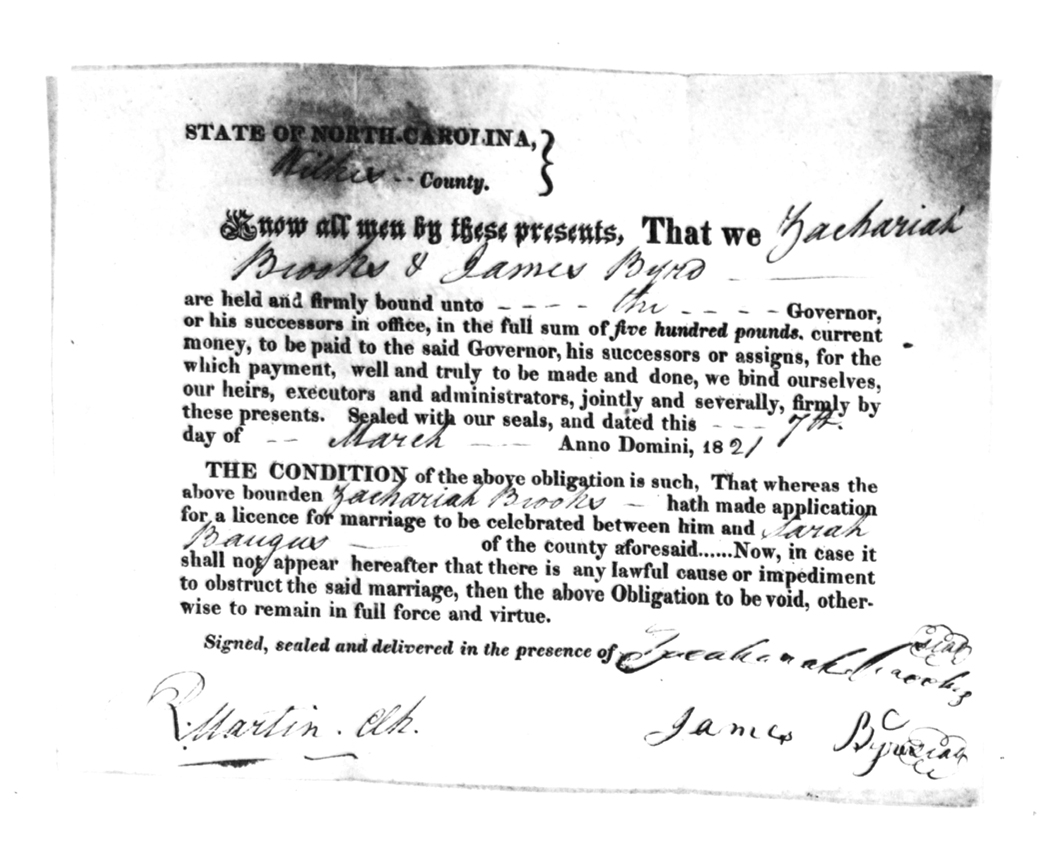 STATE OF NORTH-CAROLINA,
Wilkes -- County.
Know all men by these presents, That we Zachariah
Brooks & James Byrd
are held and firmly bound unto - - - - the - - - - Governor,
or his successors in office, in the full sum of five hundred pounds. current
money, to be paid to the said Governor, his successors or assigns, for the
which payment, well and truly to be made and done, we bind ourselves,
our heirs, executors and administrators, jointly and severally, firmly by
these presents. Sealed with our seals, and dated this - - - 7th.
day of -- March --- Anno Domini, 1821
THE CONDITION of the above obligation is such, That whereas the
above bounden Zachariah Brooks - hath made application
for a licence for marriage to be celebrated between him and Sarah
Baugus - of the county aforesaid......Now, in case it
shall not appear hereafter that there is any lawful cause or impediment
to obstruct the said marriage, then the above Obligation to be void, other-
wise to remain in full force and virtue.
Signed, sealed and delivered in the presence of
seal
R. Martin. Clk.
James Byrd seal